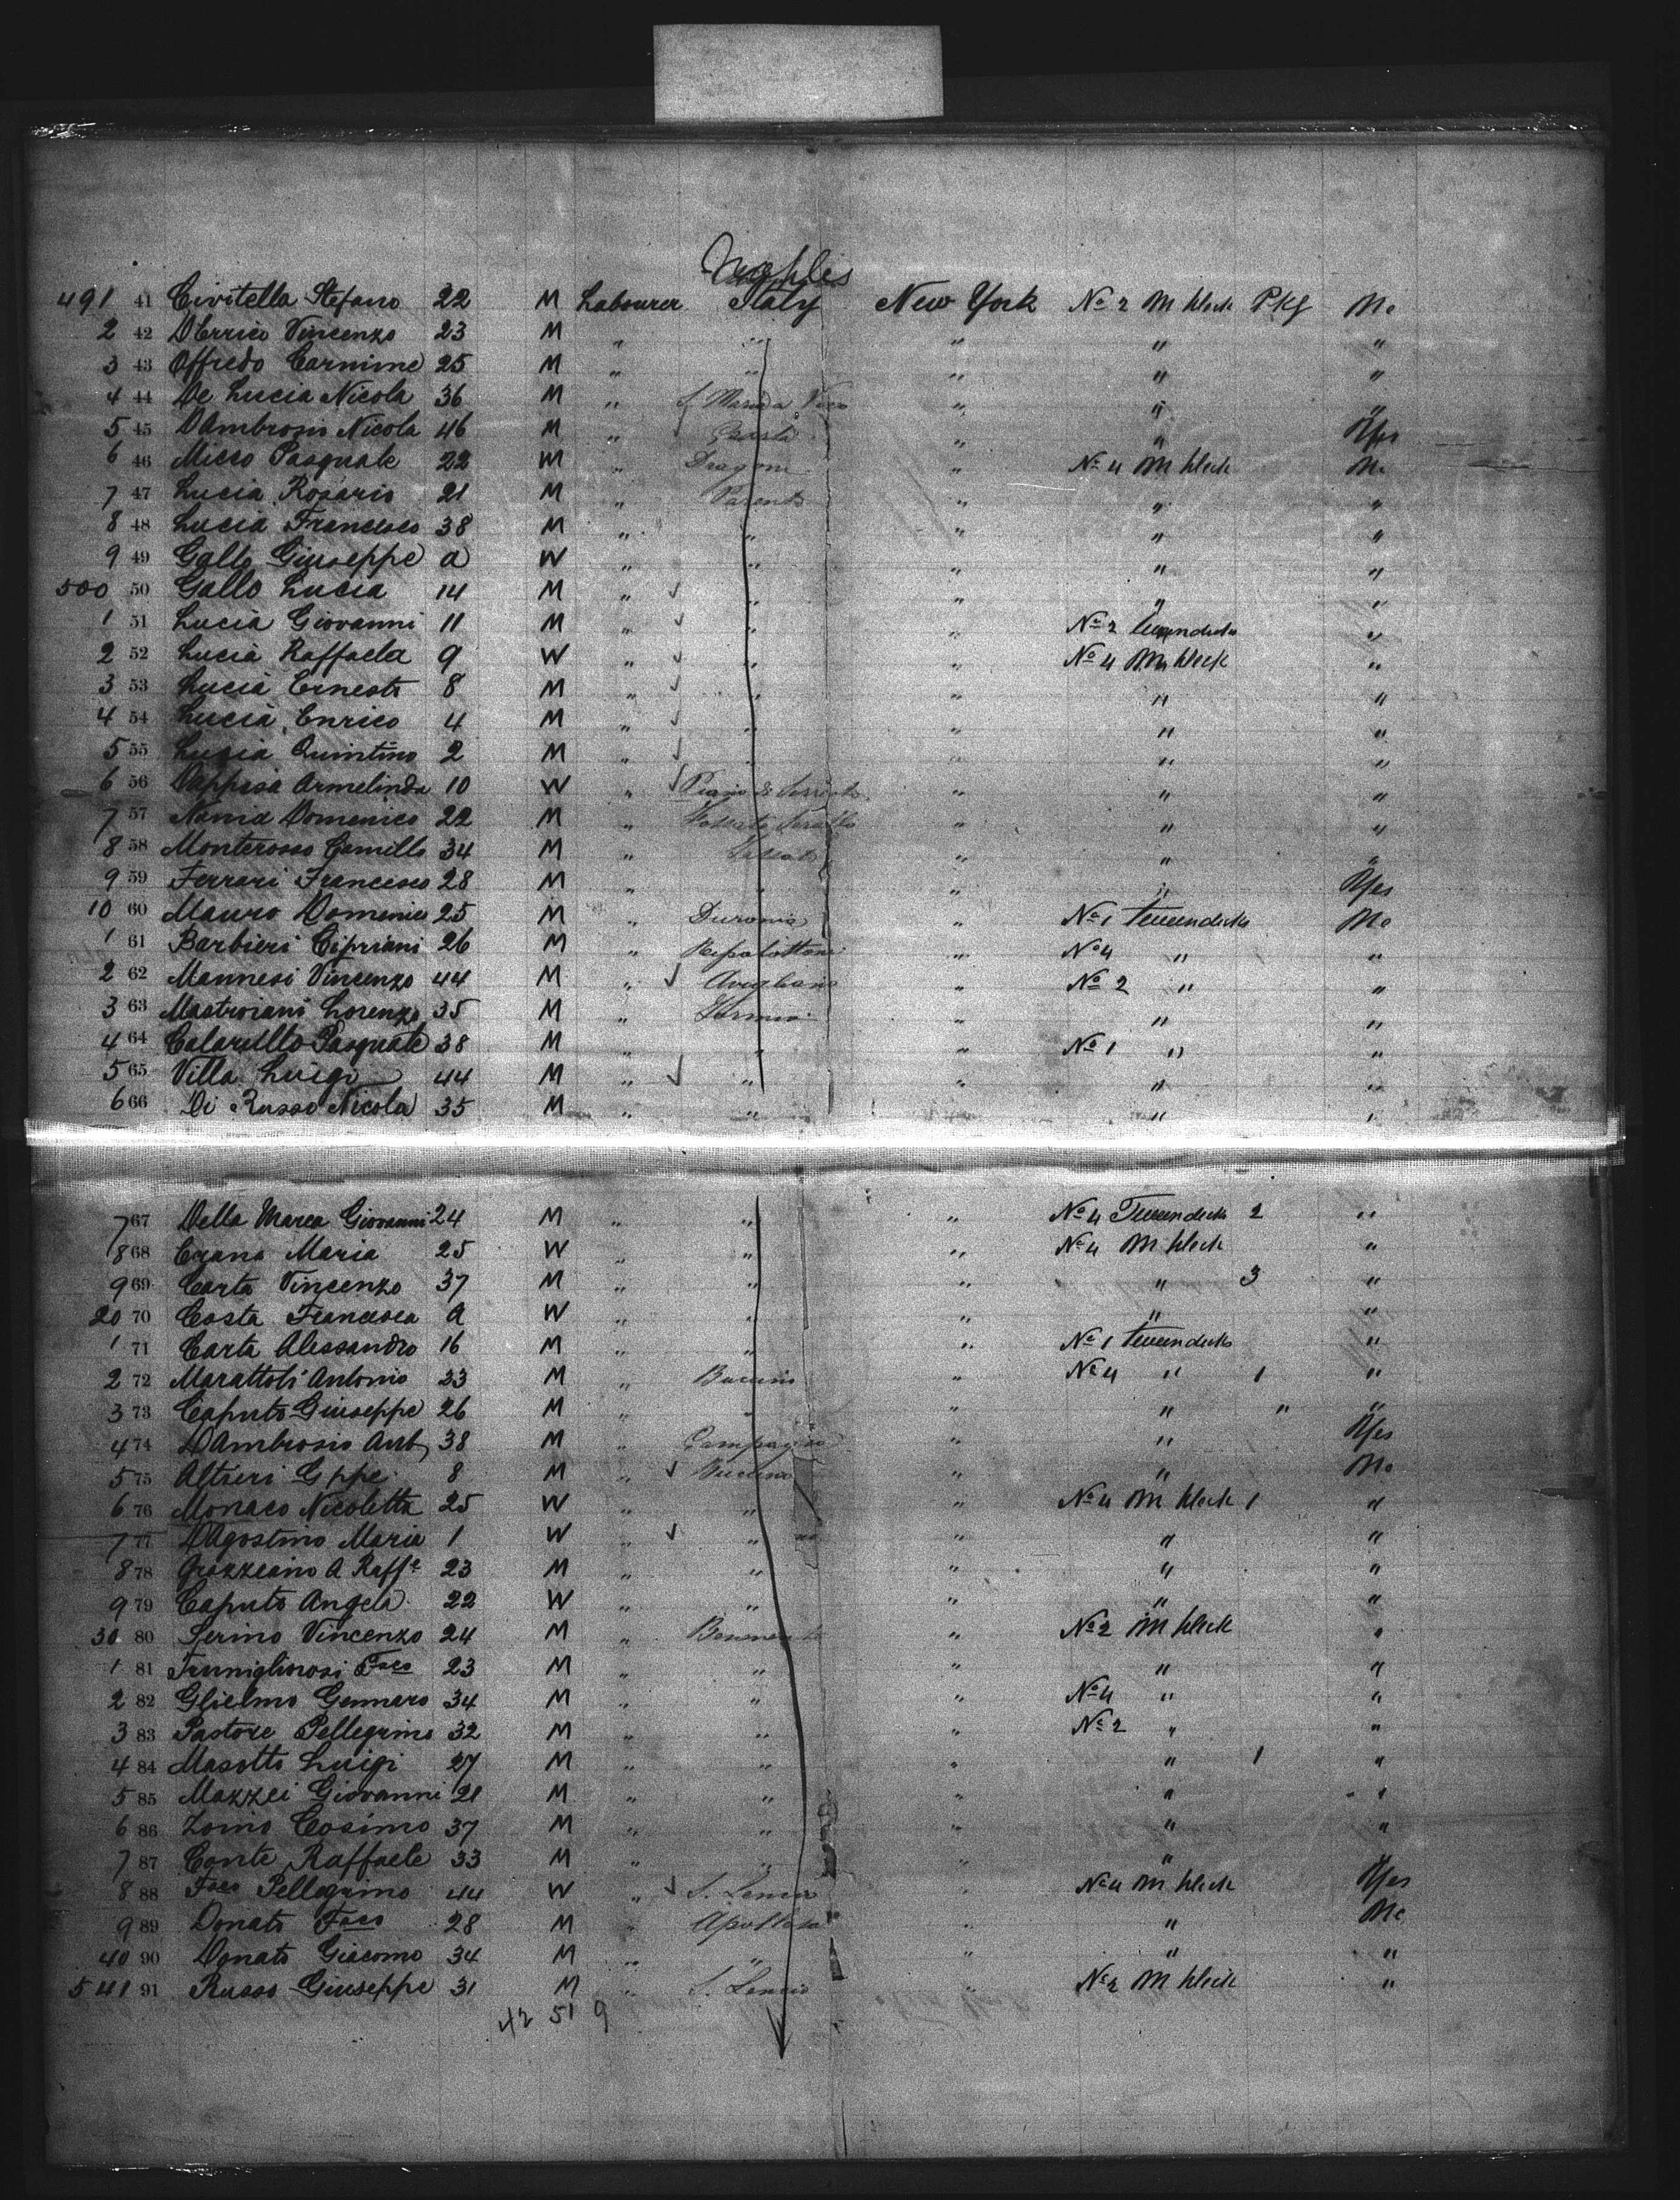 Naples
491 41 Civitella Stefano 22 M Labourer Italy New York No 2 M Deck Pkg No
2 42 DErrico Vincenzo 23 M " " " " "
3 43 Offredo Carmine 25 M " " " " "
4 44 De Lucia Nicola 36 M " " " "
5 45 DAmbrosio Nicola 46 M " " " Yes
6 46 Micco Pasquale 22 M " Dragoni " No 4 M Deck No
7 47 Lucia Rosario 21 M " Parenti " " "
8 48 Lucia Francesco 38 M " " " " "
9 49 Gallo Giuseppe a W " " " " "
500 50 Gallo Lucia 14 M " " " " "
1 51 Lucia Giovanni 11 M " " " No 2 "
2 52 Lucia Raffaela 9 W " " " No 4 M Deck "
3 53 Lucia Ernesto 8 M " " " " "
4 54 Lucia Enrico 4 M " " " " "
5 55 Lucia Quintino 2 M " " " " "
6 56 Armelinda 10 W " Piano di " " "
7 57 Nania Domenico 22 M " " " "
8 58 Monterosso Camillo 34 M " " " "
9 59 Ferrari Francesco 28 M " " " " Yes
10 60 Mauro Domenico 25 M " Duronia " No 1 Tweendeck No
1 61 Barbieri Cipriani 26 M " " No 4 " "
2 62 Mannesi Vincenzo 44 M " Avigliano " No 2 " "
3 63 Mastroiani Lorenzo 35 M " " " "
4 64 Colarullo Pasquale 38 M " " " No 1 " "
5 65 Villa Luigi 44 M " " " " "
6 66 Di Russo Nicola 35 M " " " "
7 67 Della Marca Giovanni 24 M " " " No 4 Tweendeck 2 "
8 68 Maria 25 W " " " No 4 M Deck "
9 69 Carta Vincenzo 37 M " " " " 3 "
20 70 Costa Francesca a W " " " " "
1 71 Carta Alessandro 16 M " " " No 1 Tweendeck "
2 72 Marattoli Antonio 33 M " Buccino " No 4 " 1 "
3 73 Caputo Giuseppe 26 M " " " " " "
4 74 DAmbrosio Ant 38 M " Campagna " " Yes
5 75 Altieri Gppe 8 M " Buccino " " No
6 76 Monaco Nicoletta 25 W " " " No 4 M Deck 1 "
7 77 DAgostino Maria 1 W " " " " "
8 78 Grazziano A Raffe 23 M " " " " "
9 79 Caputo Angela 22 W " " " " "
30 80 Serino Vincenzo 24 M " Benevento " No 2 M Deck "
1 81 Fcco 23 M " " " " "
2 82 Glielmo Gennaro 34 M " " " No 4 " "
3 83 Pastore Pellegrino 32 M " " " No 2 " "
4 84 Masotto Luigi 27 M " " " " 1 "
5 85 Mazzei Giovanni 21 M " " " " "
6 86 Zoino Cosimo 37 M " " " " "
7 87 Conte Raffaele 33 M " " " "
8 88 Fcco Pellegrino 44 W " " No 4 M Deck Yes
9 89 Donato Fcco 28 M " Apollosa " " No
40 90 Donato Giacomo 34 M " " " " "
541 91 Russo Giuseppe 31 M " " No 2 M Deck "
42 51 9